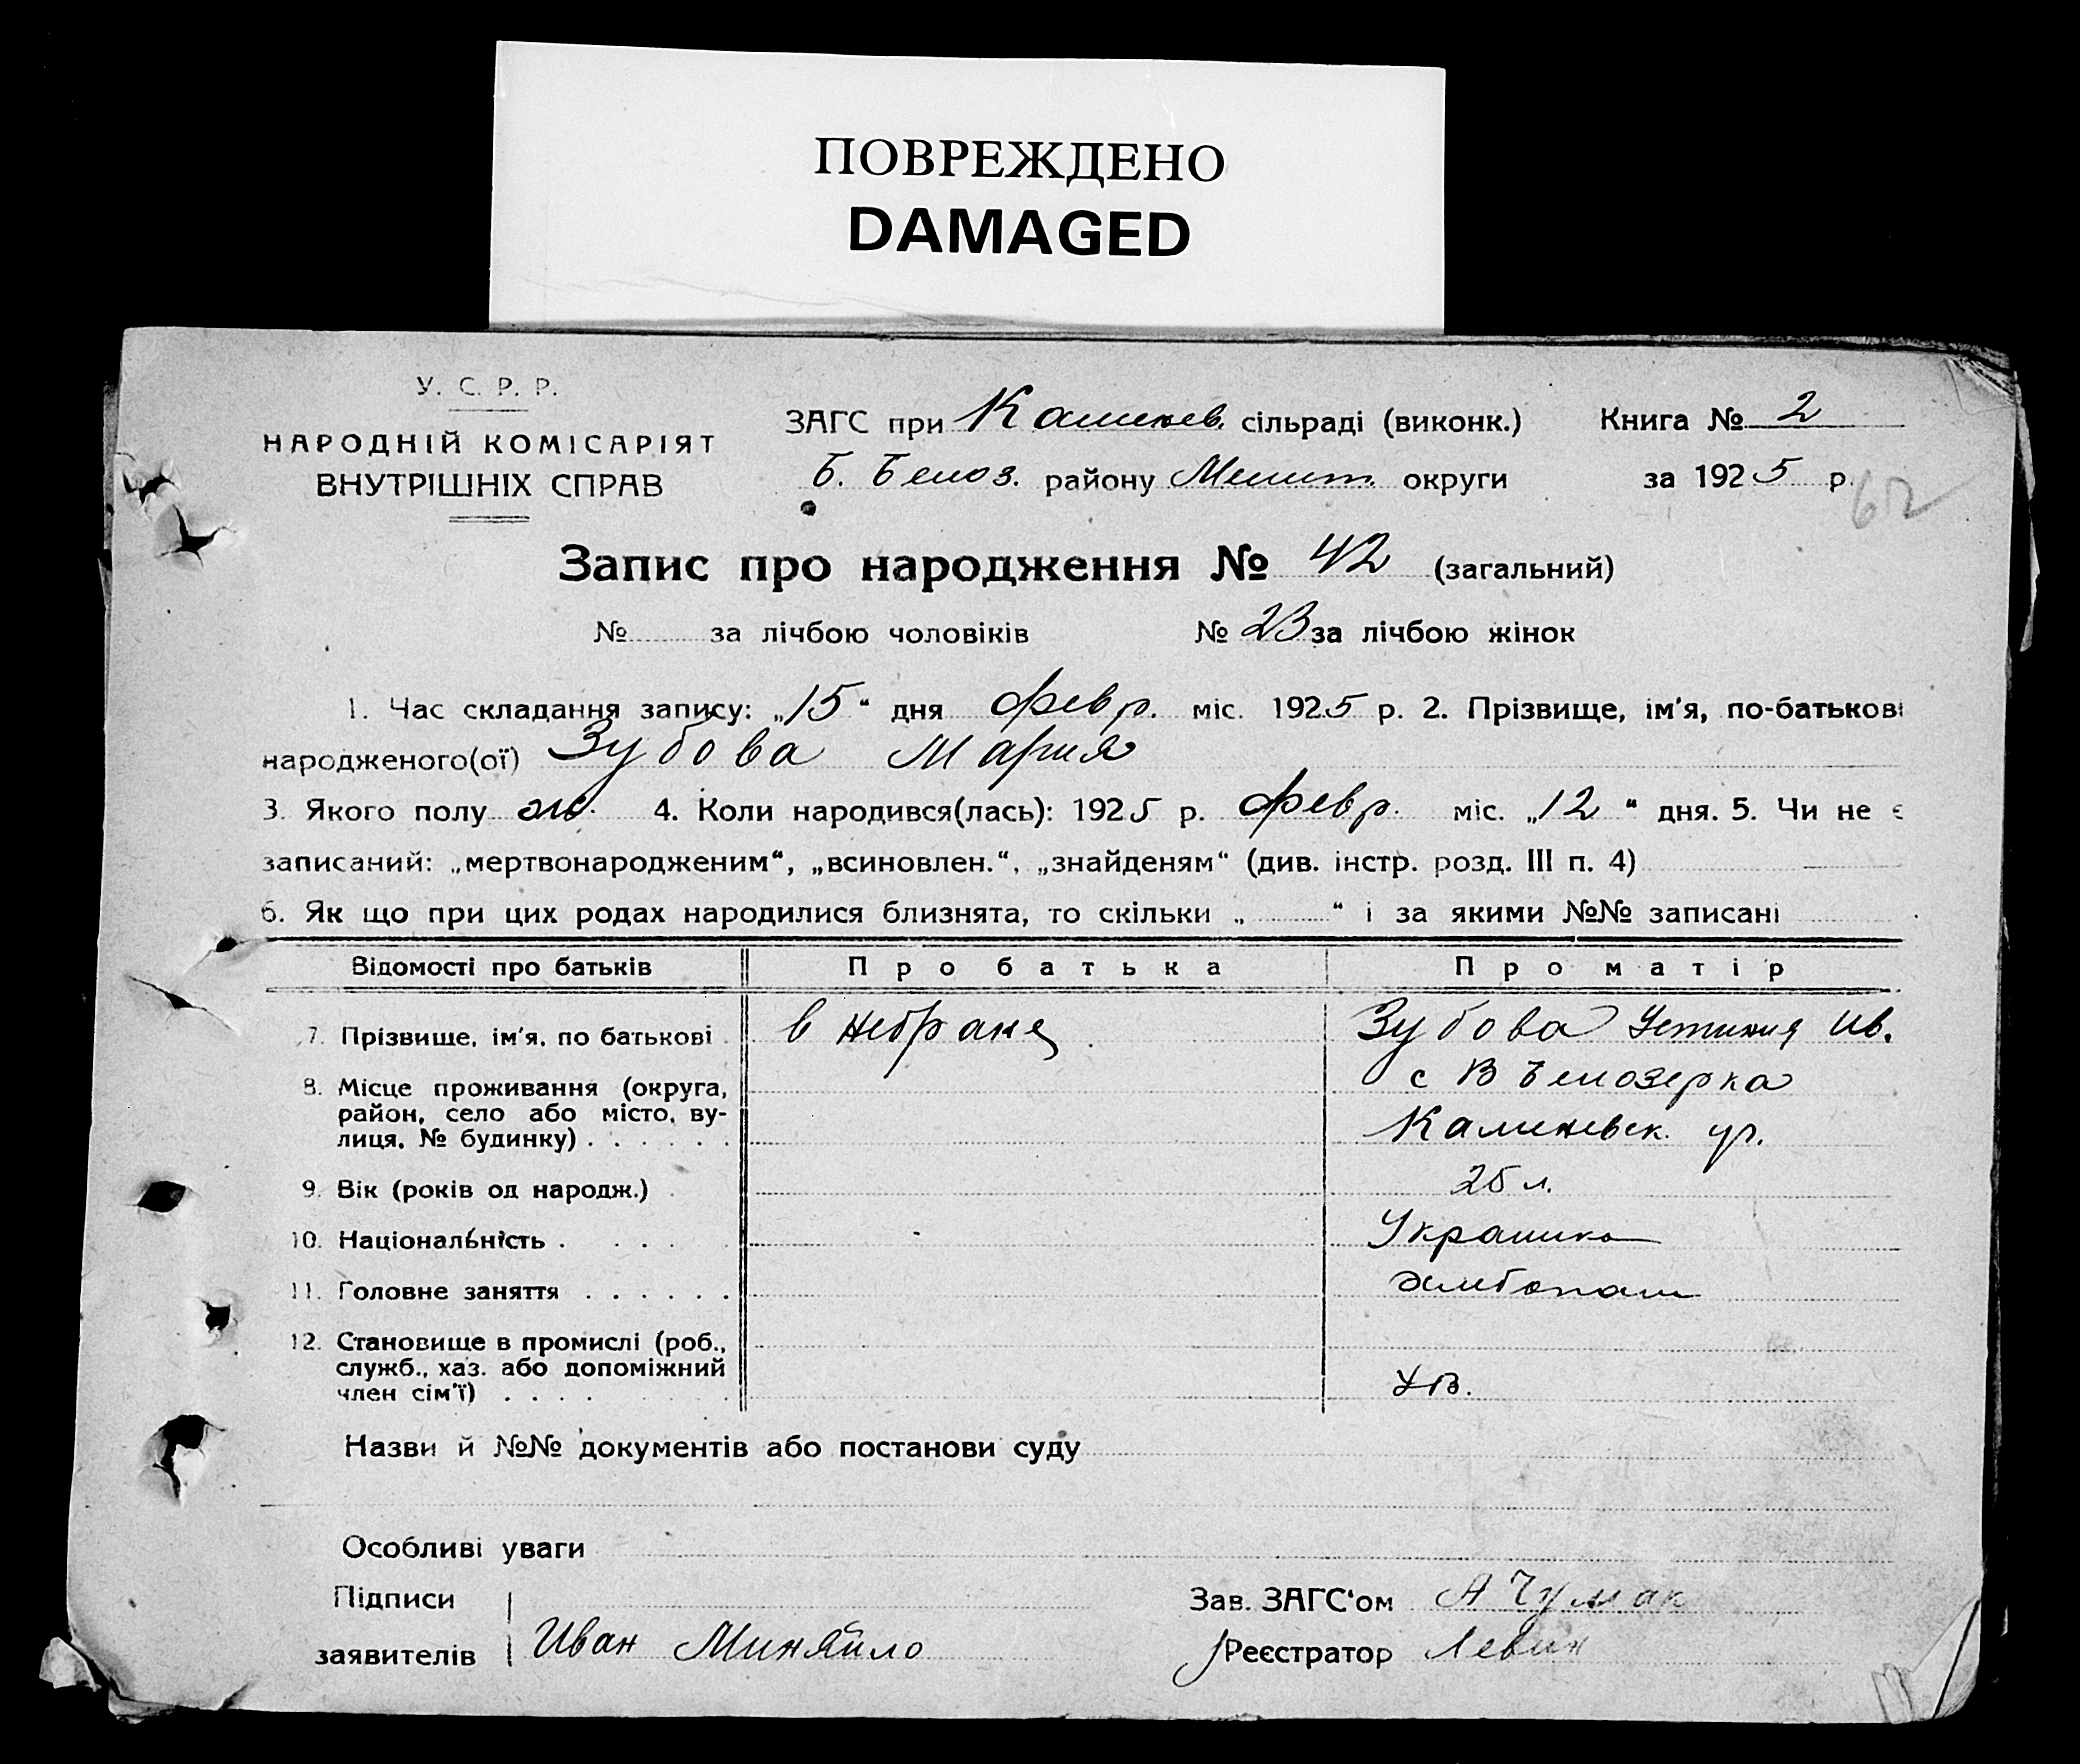 ПОВРЕЖДЕНО
DAMAGED
У. С. Р. Р.
НАРОДНІЙ КОМІСАРІЯТ
ВНУТРІШНІХ СПРАВ
ЗАГС при Каменев. сільраді (виконк.)
Б. Белоз. району Мелит. округи
Книга № 2
за 1925 р.
62
Запис про народження № 42 (загальний)
№ за лічбою чоловіків № 23 за лічбою жінок
1. Час складання запису: „15“ дня февр. міс. 1925 р. 2. Прізвище, ім'я, по-батькові
народженого(ої) Зубова Мария
3. Якого полу ж. 4. Коли народився(лась): 1925 р. февр. міс. „12“ дня. 5. Чи не є
записаний: „мертвонародженим“, „всиновлен.“, „знайденям“ (див. інстр. розд. III п. 4)
6. Як що при цих родах народилися близнята, то скільки „ “ і за якими №№ записані
Відомості про батьків Про батька Про матір
7. Прізвище, ім'я, по батькові в небраке Зубова Устиния Ив.
8. Місце проживання (округа, с В Белозерка
район, село або місто, ву-
лиця, № будинку) . . . . . . Каменевск. ур.
9. Вік (років од народж.) . 25 л.
10. Національність . . . . Украинка
11. Головне заняття . . . . . . хлебопаш
12. Становище в промислі (роб.,
служб., хаз. або допоміжний
член сім'ї) . . . .
Назви й №№ документів або постанови суду
Особливі уваги
Підписи
заявителів Иван Миняйло
Зав. ЗАГС'ом А Чумак
Реєстратор Левин